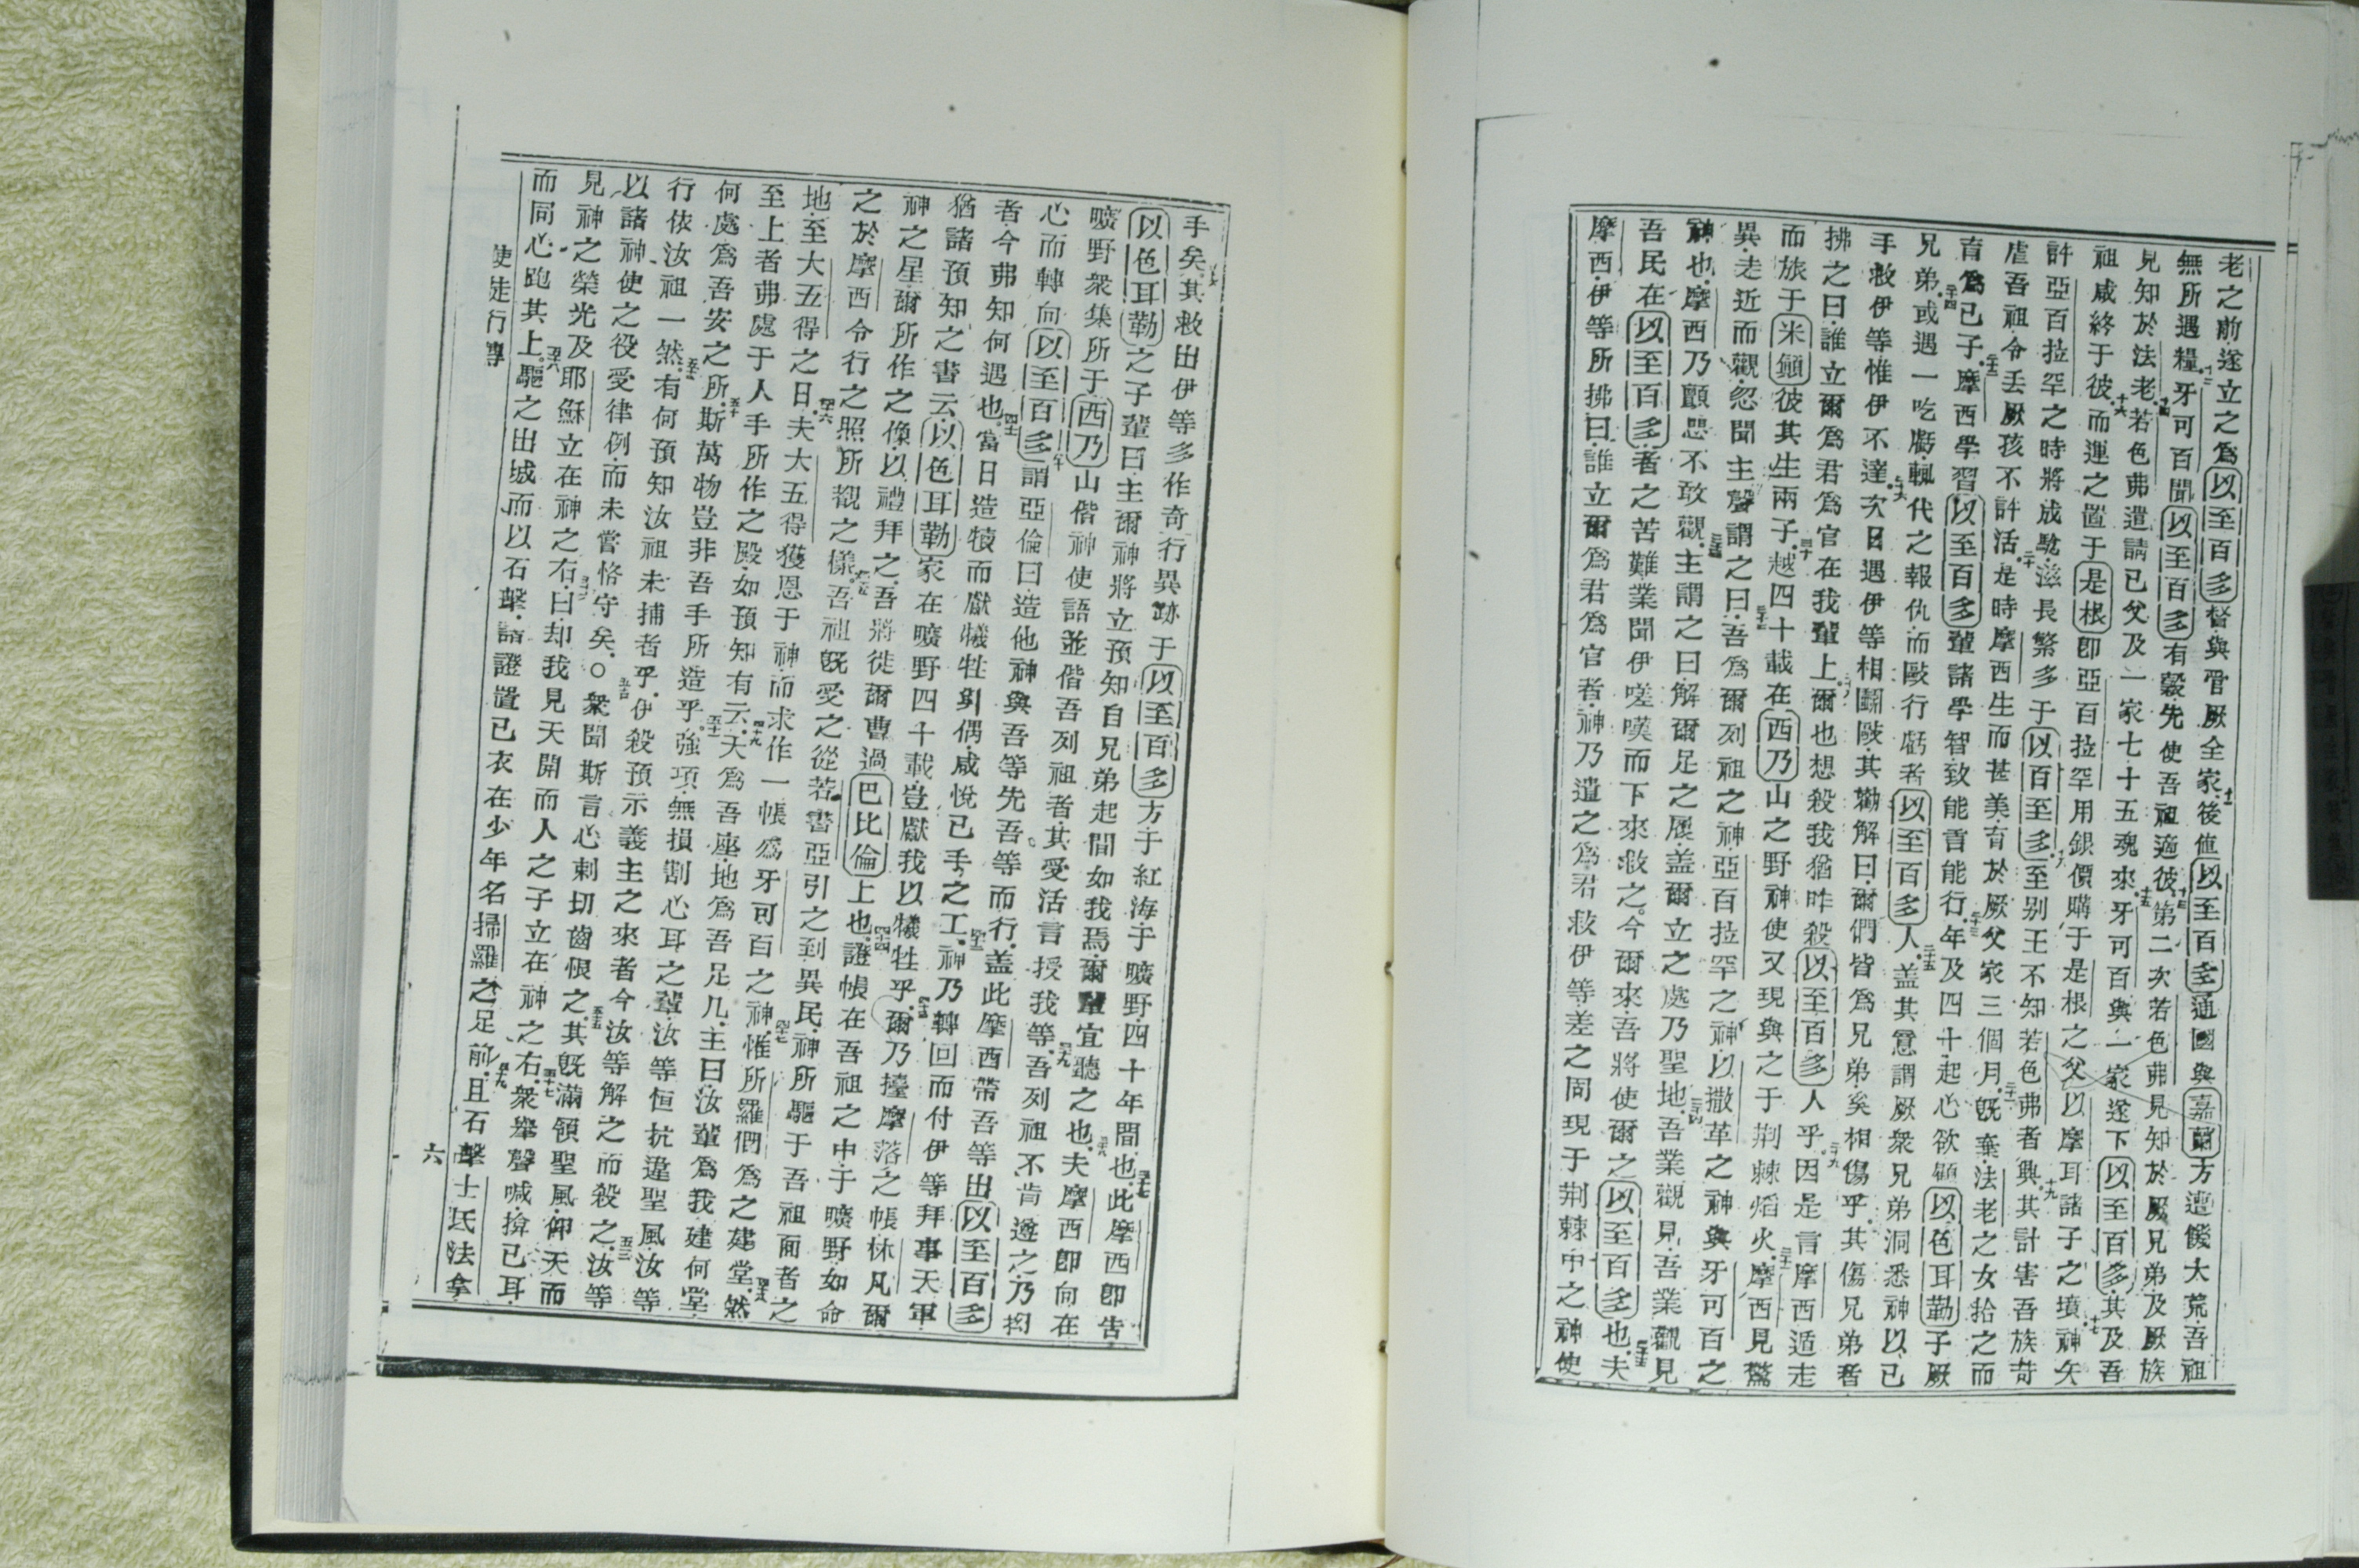 老之前遂立之爲以至百多督與管厥全家十一後值以至百多通國與嘉蘭方遭饑大荒吾祖
無所遇糧十二牙可百聞以至百多有糓先使吾祖適彼十三第二次若色弗見知於厥兄弟及厥族
見知於法老十四若色弗遣請已父及一家七十五魂來十五牙可百與一家遂下以至百多其及吾
祖咸終于彼十六而運之置于是根卽亞百拉罕用銀價購于是根之父以摩耳諸子之墳十七神矢
許亞百拉罕之時將成騐滋長繁多于以百至多十八至别王不知若色弗者興十九其計害吾族苛
虐吾祖令丢厥孩不許活二十是時摩西生而甚美育於厥父家三個月二十一旣棄法老之女拾之而
育爲已子二十二摩西學習以至百多輩諸學智致能言能行二十三年及四十起心欲顧以色耳勒子厥
兄弟二十四或遇一吃虧輒代之報仇而毆行虧者以至百多人二十五盖其意謂厥衆兄弟洞悉神以已
手救伊等惟伊不達二十六次日遇伊等相鬬毆其勸解曰爾們皆爲兄弟奚相傷乎其傷兄弟者
拂之曰誰立爾爲君爲官在我輩上二十八爾也想殺我猶昨殺以至百多人乎二十九因是言摩西遁走
而旅于米顚彼其生兩子三十越四十載在西乃山之野神使又現與之于荆棘熖火三十一摩西見驚
異走近而觀忽聞主聲謂之曰三十二吾爲爾列祖之神亞百拉罕之神以撒革之神與牙可百之
神也摩西乃顫思不敢觀三十三主謂之曰解爾足之履盖爾立之處乃聖地三十四吾業觀見吾業觀見
吾民在以至百多者之苦難業聞伊嗟嘆而下來救之今爾來吾將使爾之以至百多也三十五夫
摩西伊等所拂曰誰立爾爲君爲官者神乃遣之爲君救伊等差之同現于荆棘中之神使
手矣三十六其救出伊等多作奇行異跡于以至百多方于紅海于曠野四十年間也三十七此摩西卽告
以色耳勒之子輩曰主爾神將立預知自兄弟起間如我焉爾輩宜聽之也三十八夫摩西卽向在
曠野衆集所于西乃山偕神使語並偕吾列祖者其受活言授我等三十九吾列祖不肯遜之乃抝
心而轉向以至百多四十謂亞倫曰造他神與吾等先吾等而行盖此摩西帶吾等出以至百多
者今弗知何遇也四十一當日造犢而獻犧牲與偶咸悅已手之工四十二神乃轉回而付伊等拜事天軍
猶諸預知之書云以色耳勒家在曠野四十載豈獻我以犧牲乎四十三爾乃擡摩落之帳休凡爾
神之星爾所作之像以禮拜之吾將徙爾曹過巴比倫上也四十四證帳在吾祖之中于曠野如命
之於摩西令行之照所覩之樣四十五吾祖旣愛之從若書亞引之到異民神所驅于吾祖面者之
地至大五得之日四十六夫大五得獲恩于神而求作一帳爲牙可百之神四十七惟所羅們爲之建堂四十八然
至上者弗處于人手所作之殿如預知有云四十九天爲吾座地爲吾足几主曰汝輩爲我建何堂
何處爲吾安之所五十斯萬物豈非吾手所造乎五十一強項無損割心耳之輩汝等恒抗違聖風汝等
行依汝祖一然五十二有何預知汝祖未捕者乎伊殺預示義主之來者今汝等解之而殺之五十三汝等
以諸神使之役受律例而未嘗恪守矣○五十四衆聞斯言心刺切齒恨之五十五其旣滿領聖風仰天而
見神之榮光及耶穌立在神之右五十六曰却我見天開而人之子立在神之右五十七衆舉聲喊揜已耳
而同心跑其上五十八驅之出城而以石擊諸證置已衣在少年名掃羅之足前五十九且石擊士氏法拿
使徒行傳
六